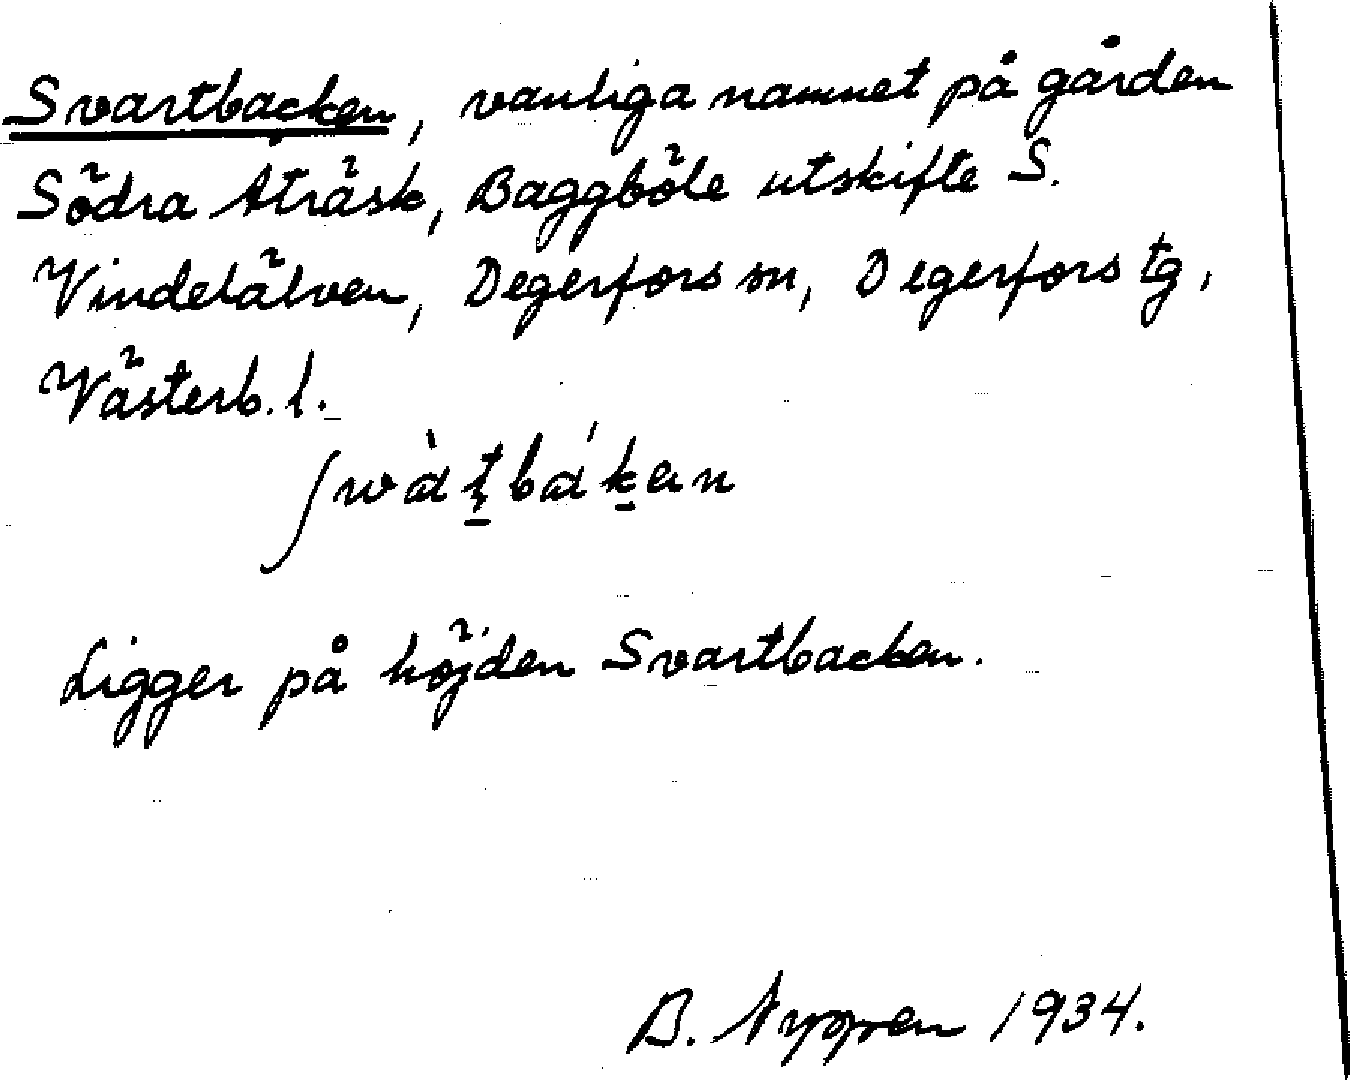 Svartbacken, vanliga namnet på gården
Södra Åträsk, Baggböle utskifte S.
Vindelälven, Degerfors sn, Degerfors tg,
Västerb. l.
Ligger på höjden Svartbacken.
B. 1934.